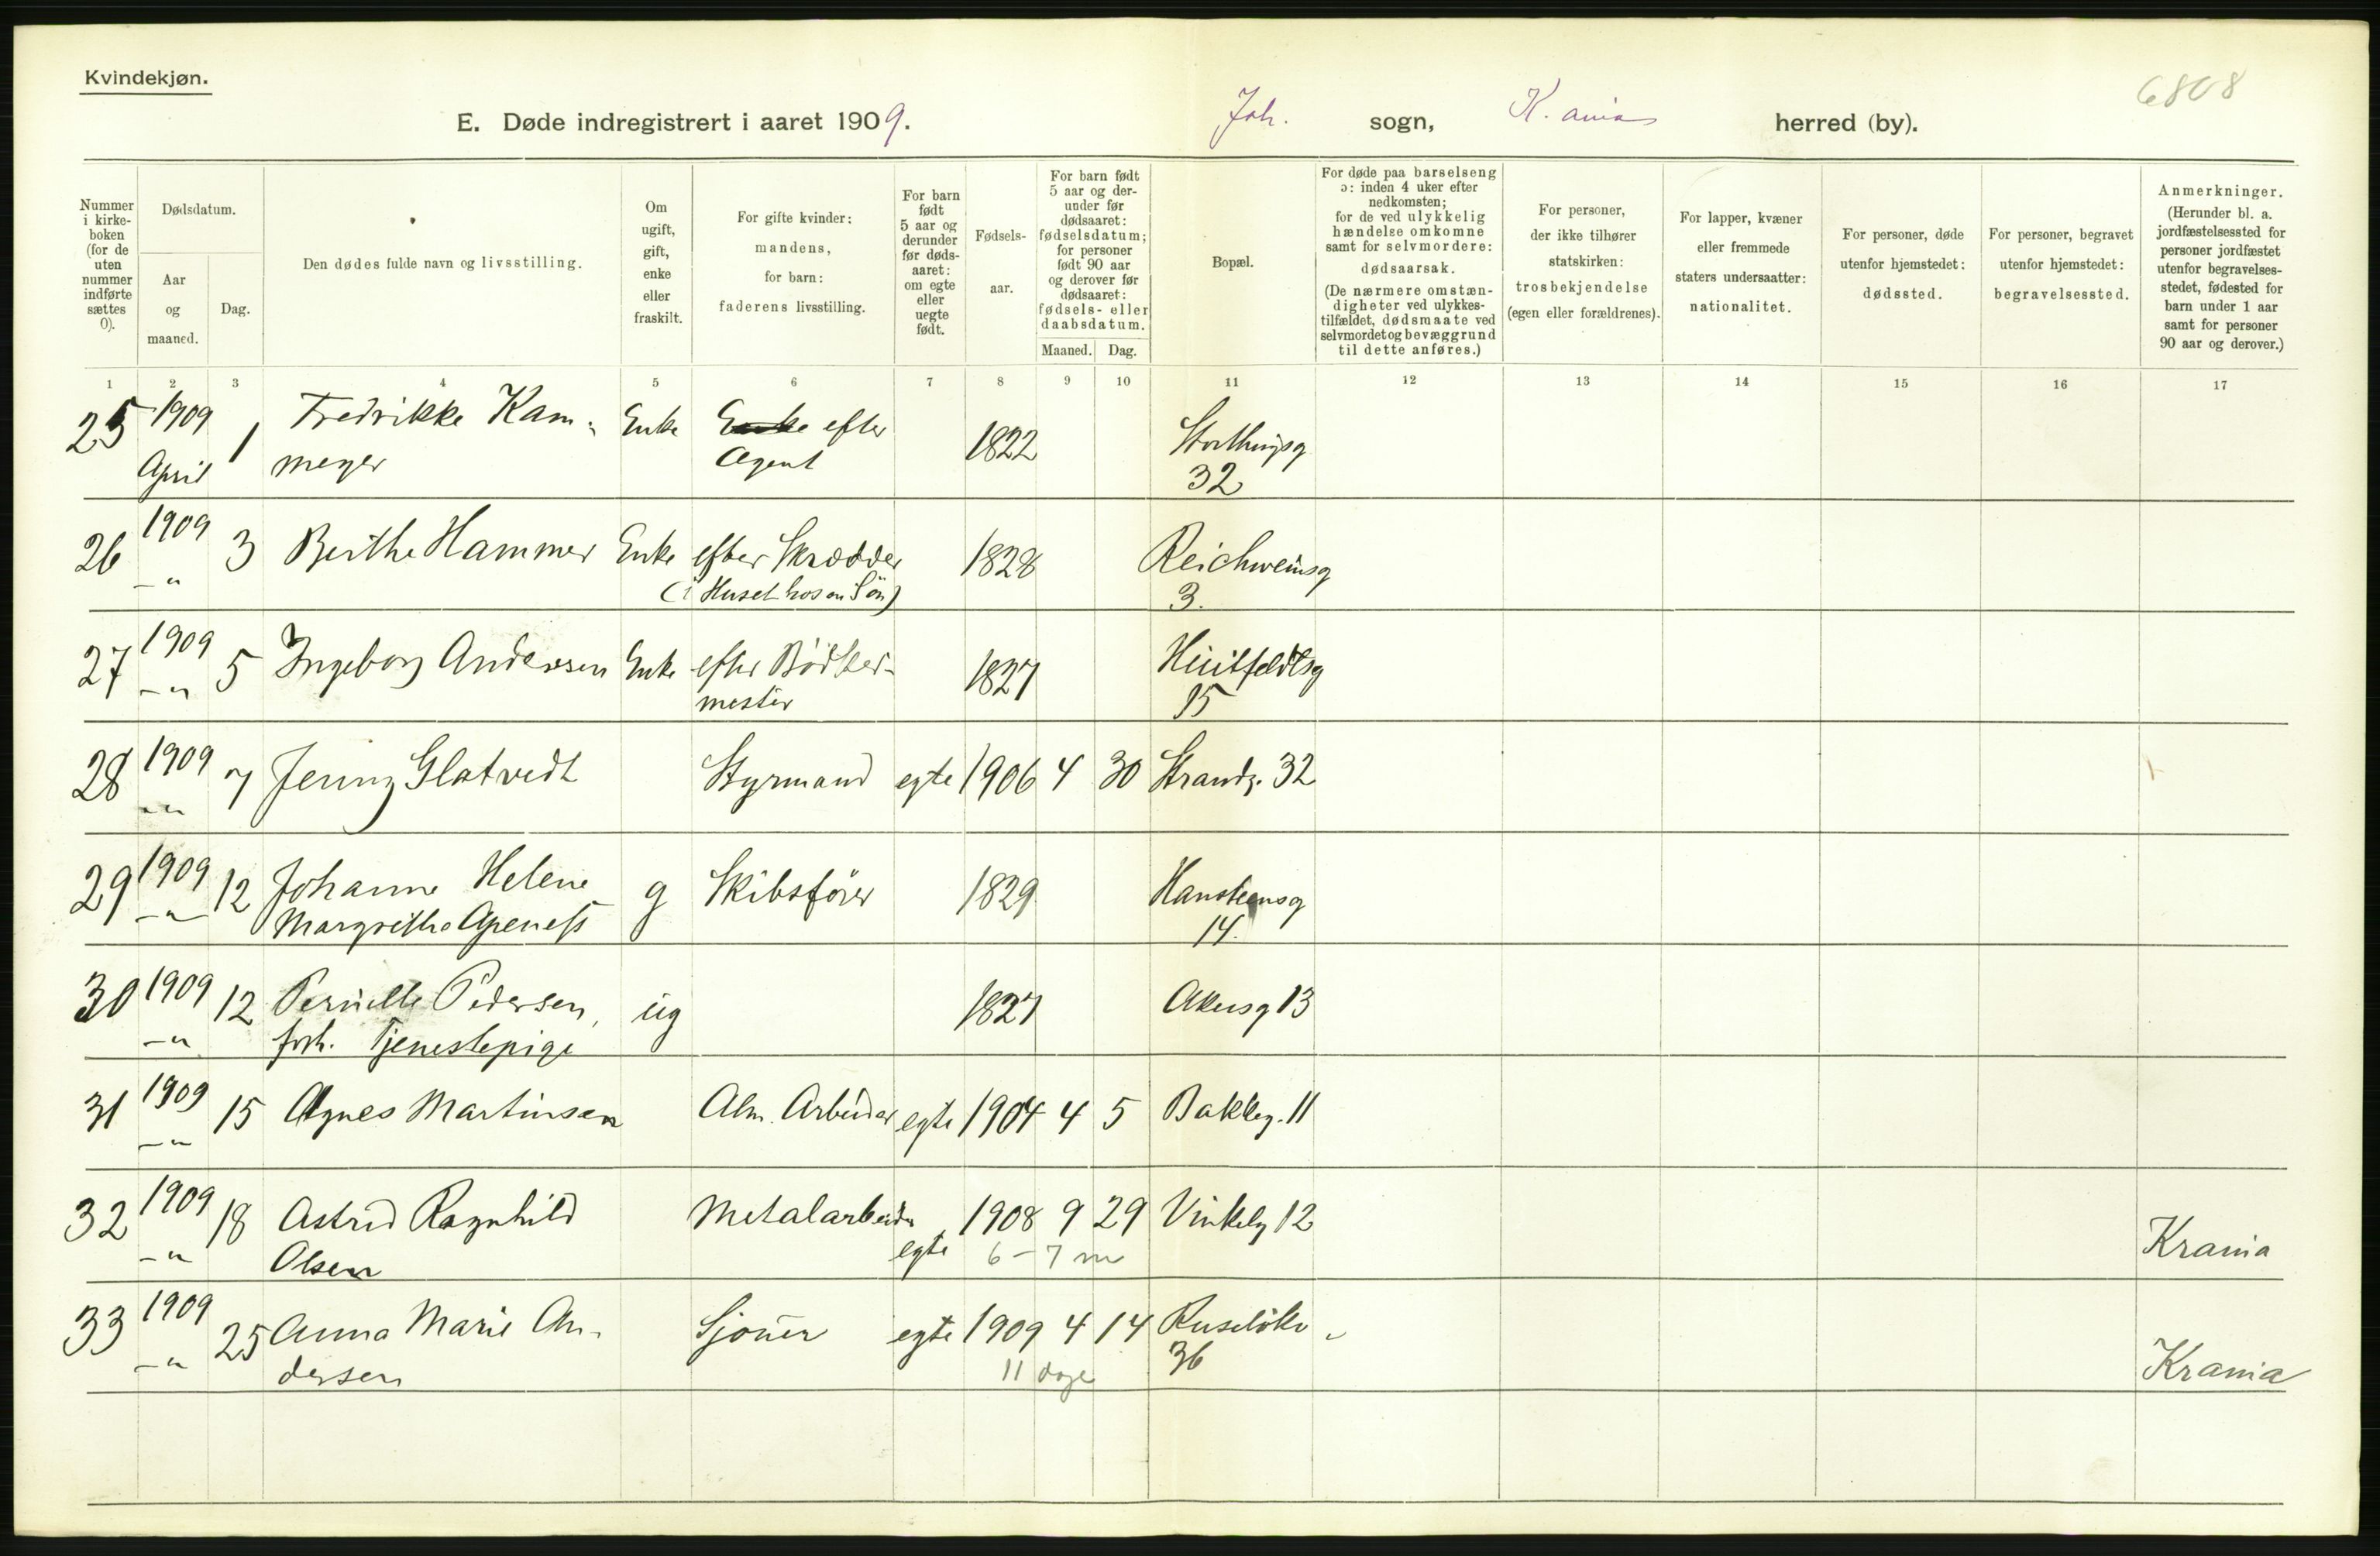 Kvindekjøn.
6808
E. Døde indregistrert i aaret 1909. Joh. sogn, K.ania herred (by).
Nummer i kirkeboken (for de uten nummer indførte sættes 0).
Dødsdatum.
Aar og maaned.
Dag.
Den dødes fulde navn og livsstilling.
Om ugift, gift, enke eller fraskilt.
For gifte kvinder: mandens, for barn: faderens livsstilling.
For barn født 5 aar og derunder før dødsaaret: om egte eller uegte født.
Fødselsaar.
For barn født 5 aar og derunder før dødsaaret: fødselsdatum; for personer født 90 aar og derover før dødsaaret: fødsels- eller daabsdatum.
Maaned. Dag.
Bopæl.
For døde paa barselseng ɔ: inden 4 uker efter nedkomsten; for de ved ulykkelig hændelse omkomne samt for selvmordere: dødsaarsak. (De nærmere omstændigheter ved ulykkestilfældet, dødsmaate ved selvmordet og bevæggrund til dette anføres.)
For personer, der ikke tilhører statskirken: trosbekjendelse (egen eller forældrenes).
For lapper, kvæner eller fremmede staters undersaatter: nationalitet.
For personer, døde utenfor hjemstedet: dødssted.
For personer, begravet utenfor hjemstedet: begravelsessted.
Anmerkninger. (Herunder bl. a. jordfæstelsessted for personer jordfæstet utenfor begravelsesstedet, fødested for barn under 1 aar samt for personer 90 aar og derover.)
1 2 3 4 5 6 7 8 9 10 11 12 13 14 15 16 17
25 1909 1 Fredrikke Kam- Enke Enke efter 1822 Storthingsg
April meyer Agent 32
26 1909 3 Berthe Hammer Enke efter Skrædder 1828 Reichweinsg
-"- (i Huset hos en Søn) 3.
27 1909 5 Ingeborg Andersen Enke efter Bødker- 1827 Huitfeldtsg
-"- mester 15
28 1909 7 Jenny Glatvedt Styrmand egte 1906 4 30 Strandg. 32
-"-
29 1909 12 Johanne Helene g Skibsfører 1829 Hansteensg
-"- Margrethe Apeness 14.
30 1909 12 Pernille Pedersen, ug 1827 Akersg 13
-"- forh. Tjenestepige
31 1909 15 Agnes Martinsen Alm. Arbeider egte 1904 4 5 Bakkeg. 11
-"-
32 1909 18 Astrid Ragnhild Metalarbeider egte 1908 9 29 Vinkelg 12
-"- Olsen 6-7 m Krania
33 1909 25 Anna Marie An- Sjøm egte 1909 4 14 Ruseløkv
-"- dersen 11 dage 36 Krania